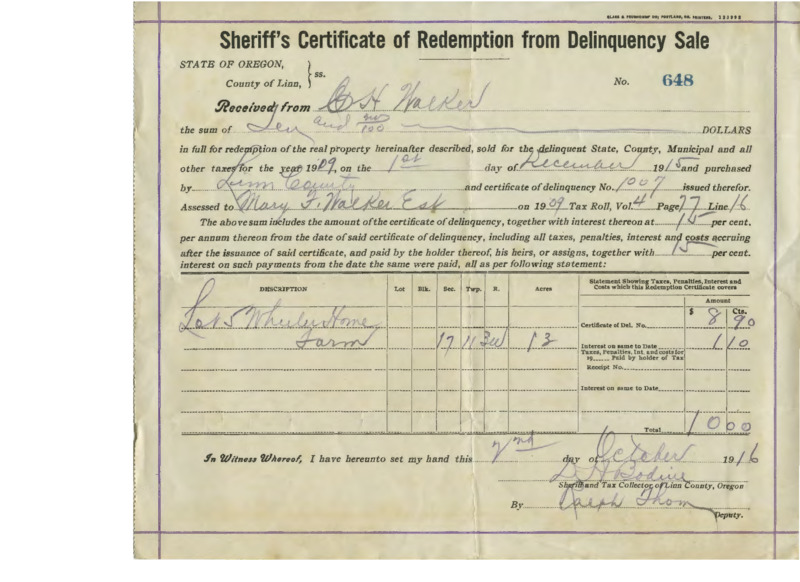 GLASS & PRUDHOMME CO., PORTLAND, OR. PRINTERS.
Sheriff's Certificate of Redemption from Delinquency Sale
STATE OF OREGON, } ss.
County of Linn, No. 648
Received from C H Walker
the sum of Ten and no/100 DOLLARS
in full for redemption of the real property hereinafter described, sold for the delinquent State, County, Municipal and all
other taxes for the year 1909, on the 1st day of December 1915 and purchased
by Linn County and certificate of delinquency No. 1007 issued therefor.
Assessed to Mary F. Walker Est on 1909 Tax Roll, Vol. 4 Page 77 Line 16
The above sum includes the amount of the certificate of delinquency, together with interest thereon at 15 per cent.
per annum thereon from the date of said certificate of delinquency, including all taxes, penalties, interest and costs accruing
after the issuance of said certificate, and paid by the holder thereof, his heirs, or assigns, together with 15 per cent.
interest on such payments from the date the same were paid, all as per following statement:
DESCRIPTION Lot Blk. Sec. Twp. R. Acres Statement Showing Taxes, Penalties, Interest and
Costs which this Redemption Certificate covers
Amount
$ Cts.
Lot 5 Wheeler Home Certificate of Del. No. 8 90
Farm 17 11 3W 13 Interest on same to Date 1 10
Taxes, Penalties, Int. and costs for
19 Paid by holder of Tax
Receipt No.
Interest on same to Date
Total 10 00
In Witness Whereof, I have hereunto set my hand this 2nd day of October 1916
D H Bodine
Sheriff and Tax Collector of Linn County, Oregon
By Ralph Thom
Deputy.